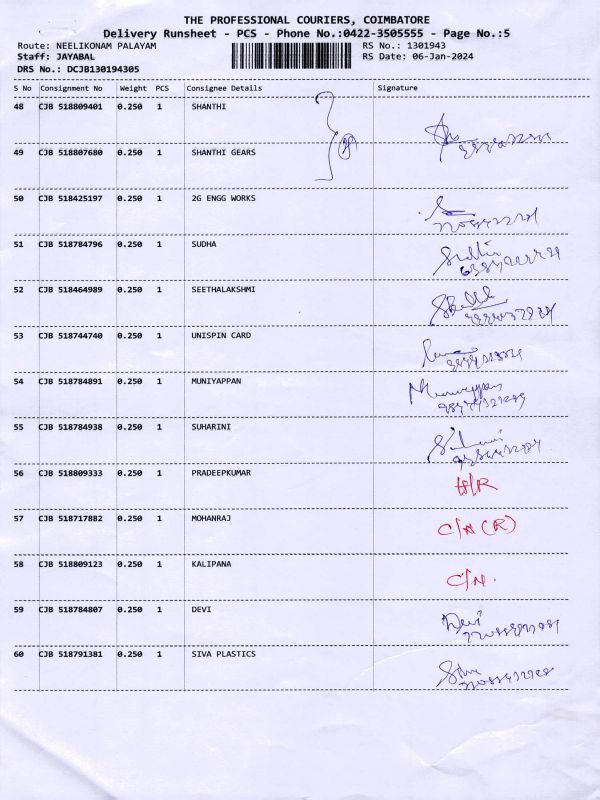 THE PROFESSIONAL COURIERS, COIMBATORE
Delivery Runsheet - PCS - Phone No.:0422-3505555 - Page No.:5
Route: NEELIKONAM PALAYAM RS No.: 1301943
Staff: JAYABAL RS Date: 06-Jan-2024
DRS No.: DCJB130194305
S No Consignment No Weight PCS Consignee Details Signature
48 CJB 518809401 0.250 1 SHANTHI
49 CJB 518807680 0.250 1 SHANTHI GEARS
50 CJB 518425197 0.250 1 2G ENGG WORKS
51 CJB 518784796 0.250 1 SUDHA
52 CJB 518464989 0.250 1 SEETHALAKSHMI
53 CJB 518744740 0.250 1 UNISPIN CARD
54 CJB 518784891 0.250 1 MUNIYAPPAN
55 CJB 518784938 0.250 1 SUHARINI
56 CJB 518809333 0.250 1 PRADEEPKUMAR
57 CJB 518717882 0.250 1 MOHANRAJ C/N (R)
58 CJB 518809123 0.250 1 KALIPANA C/N.
59 CJB 518784807 0.250 1 DEVI Devi
60 CJB 518791381 0.250 1 SIVA PLASTICS